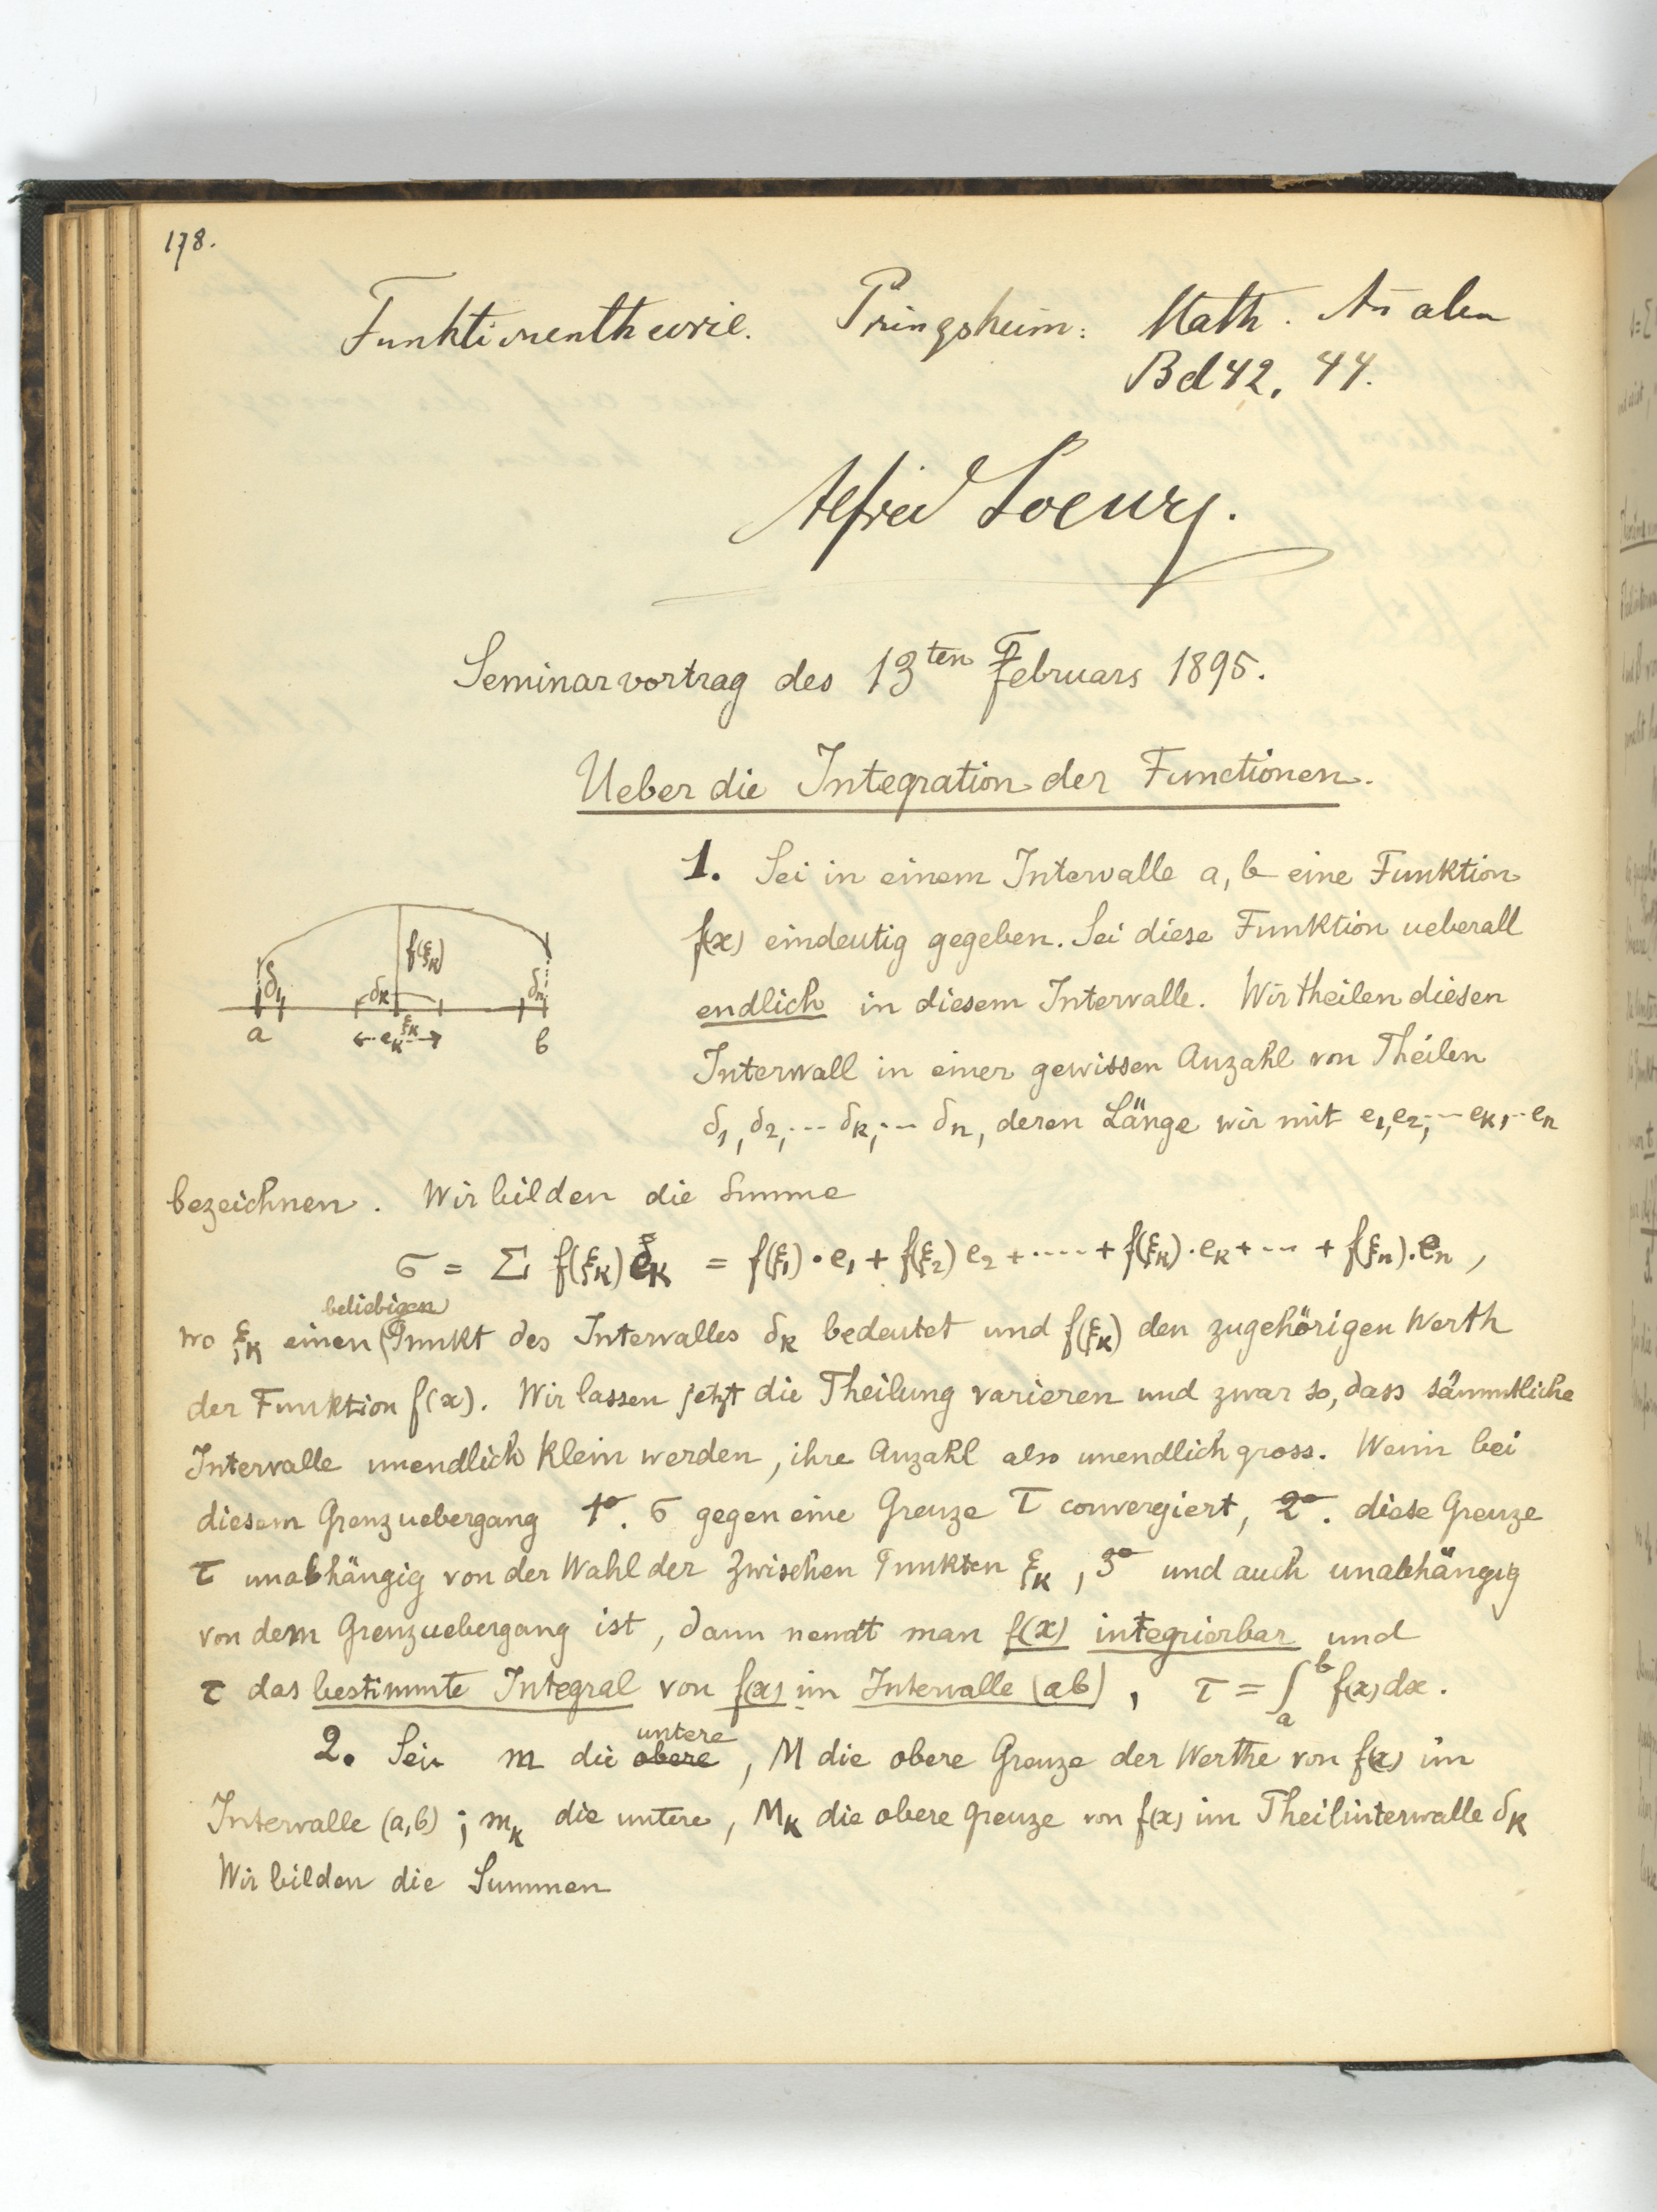 178.
Funktionentheorie. Pringsheim: Math. Añalen
Bd 42, 44.
Alfred Loewy.
Seminarvortrag des 13ten Februars 1895.
Ueber die Integration der Functionen.
1. Sei in einem Intervalle a, b eine Funktion
f(x) eindeutig gegeben. Sei diese Funktion ueberall
endlich in diesem Intervalle. Wir theilen diesen
Intervall in einer gewissen Anzahl von Theilen
δ₁, δ₂, ... δₖ, ... δₙ, deren Länge wir mit e₁, e₂, ... eₖ, ... eₙ
f(ξₖ)
δ₁ δₖ δₙ
a eₖ ξₖ b
bezeichnen. Wir bilden die Summe
σ = Σ f(ξₖ) eₖ = f(ξ₁)·e₁ + f(ξ₂) e₂ + ···· + f(ξₖ)·eₖ + ··· + f(ξₙ)·eₙ,
beliebigen
wo ξₖ einen Punkt des Intervalles δₖ bedeutet und f(ξₖ) den zugehörigen Werth
der Funktion f(x). Wir lassen jetzt die Theilung varieren und zwar so, dass sämmtliche
Intervalle unendlich klein werden, ihre Anzahl also unendlich gross. Wenn bei
diesem Grenzuebergang 1º. σ gegen eine Grenze τ convergiert, 2º. diese Grenze
τ unabhängig von der Wahl der Zwischen Punkten ξₖ, 3º und auch unabhängig
von dem Grenzuebergang ist, dann nennt man f(x) integrierbar und
τ das bestimmte Integral von f(x) im Intervalle (ab), τ = ∫ₐᵇ f(x) dx.
untere
2. Sei m die obere, M die obere Grenze der Werthe von f(x) im
Intervalle (a, b); mₖ die untere, Mₖ die obere Grenze von f(x) im Theilintervalle δₖ
Wir bilden die Summen